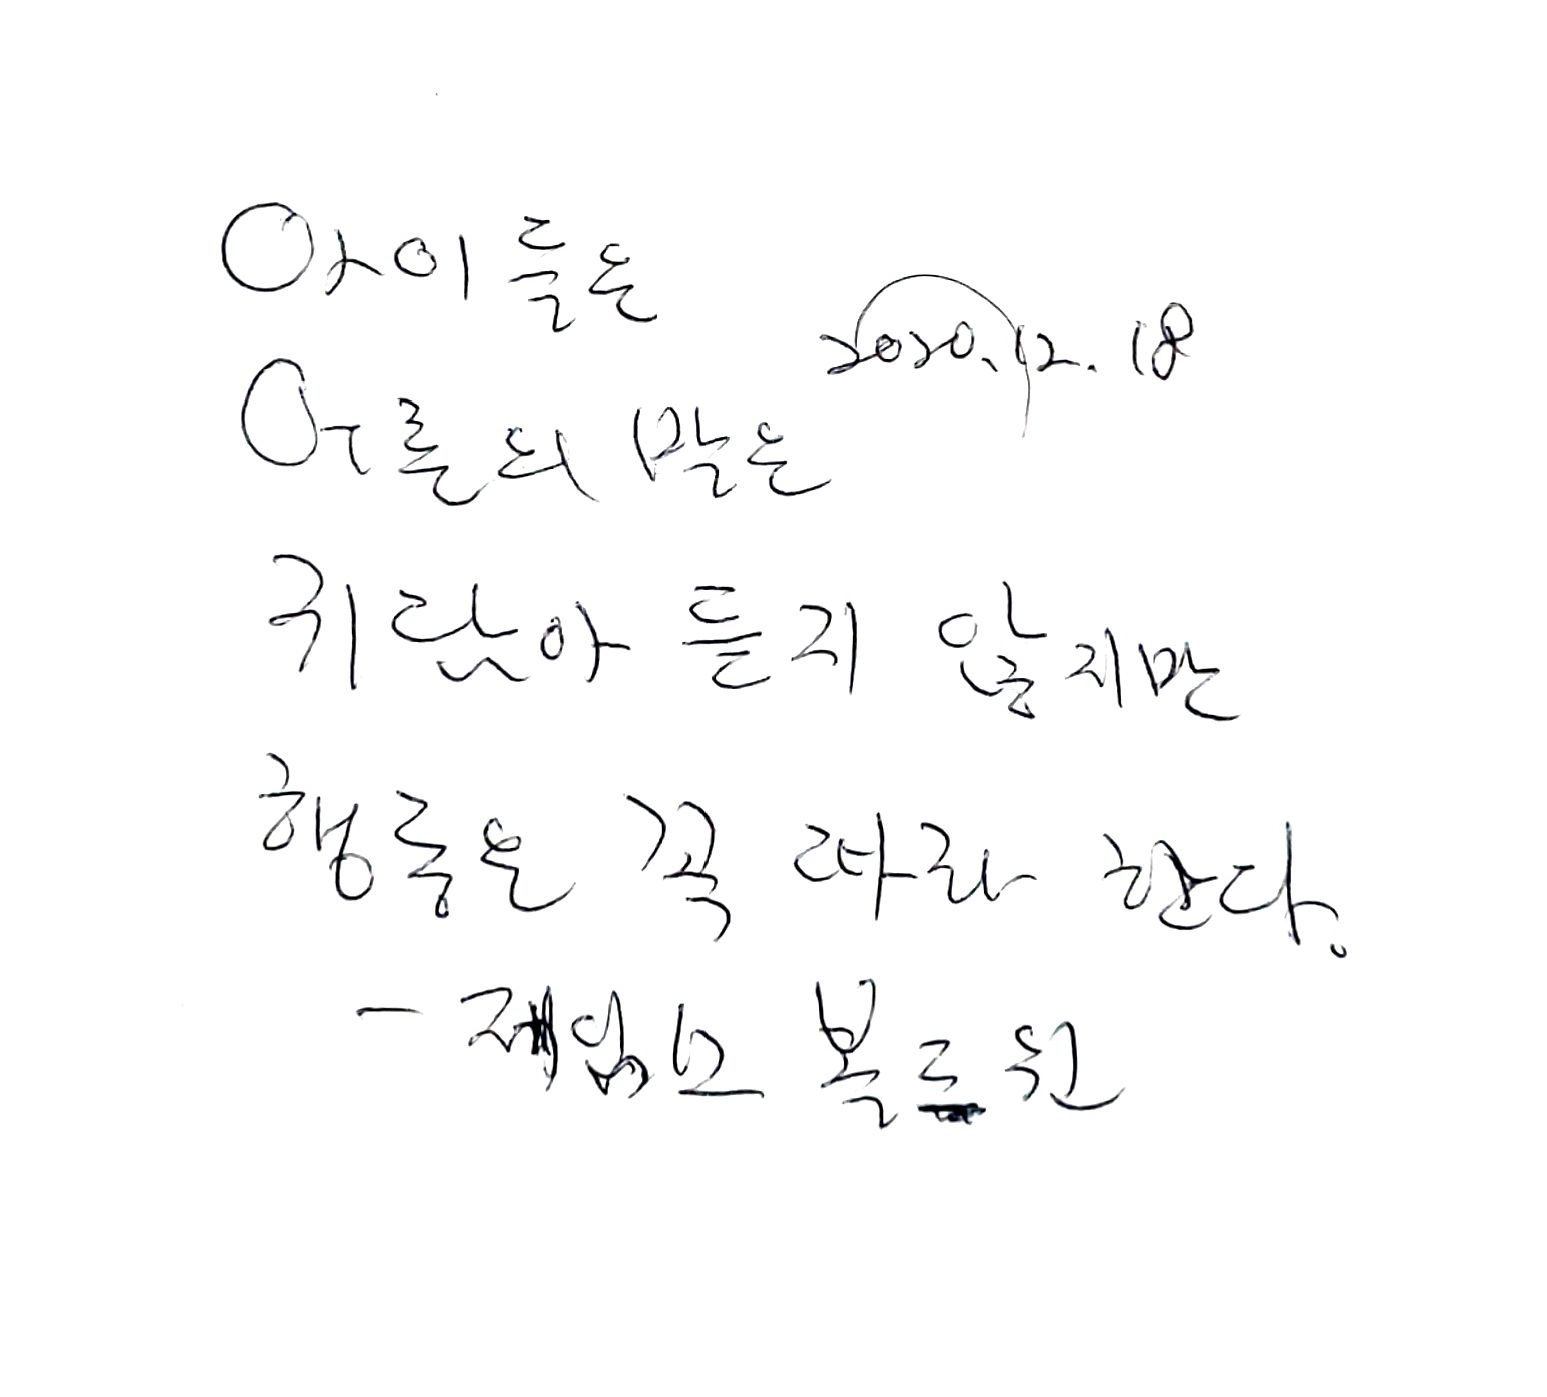 아이들은
2020.12.18
어른의 말은
귀담아 듣지 않지만
행동은 꼭 따라 한다.
- 제임스 볼드윈